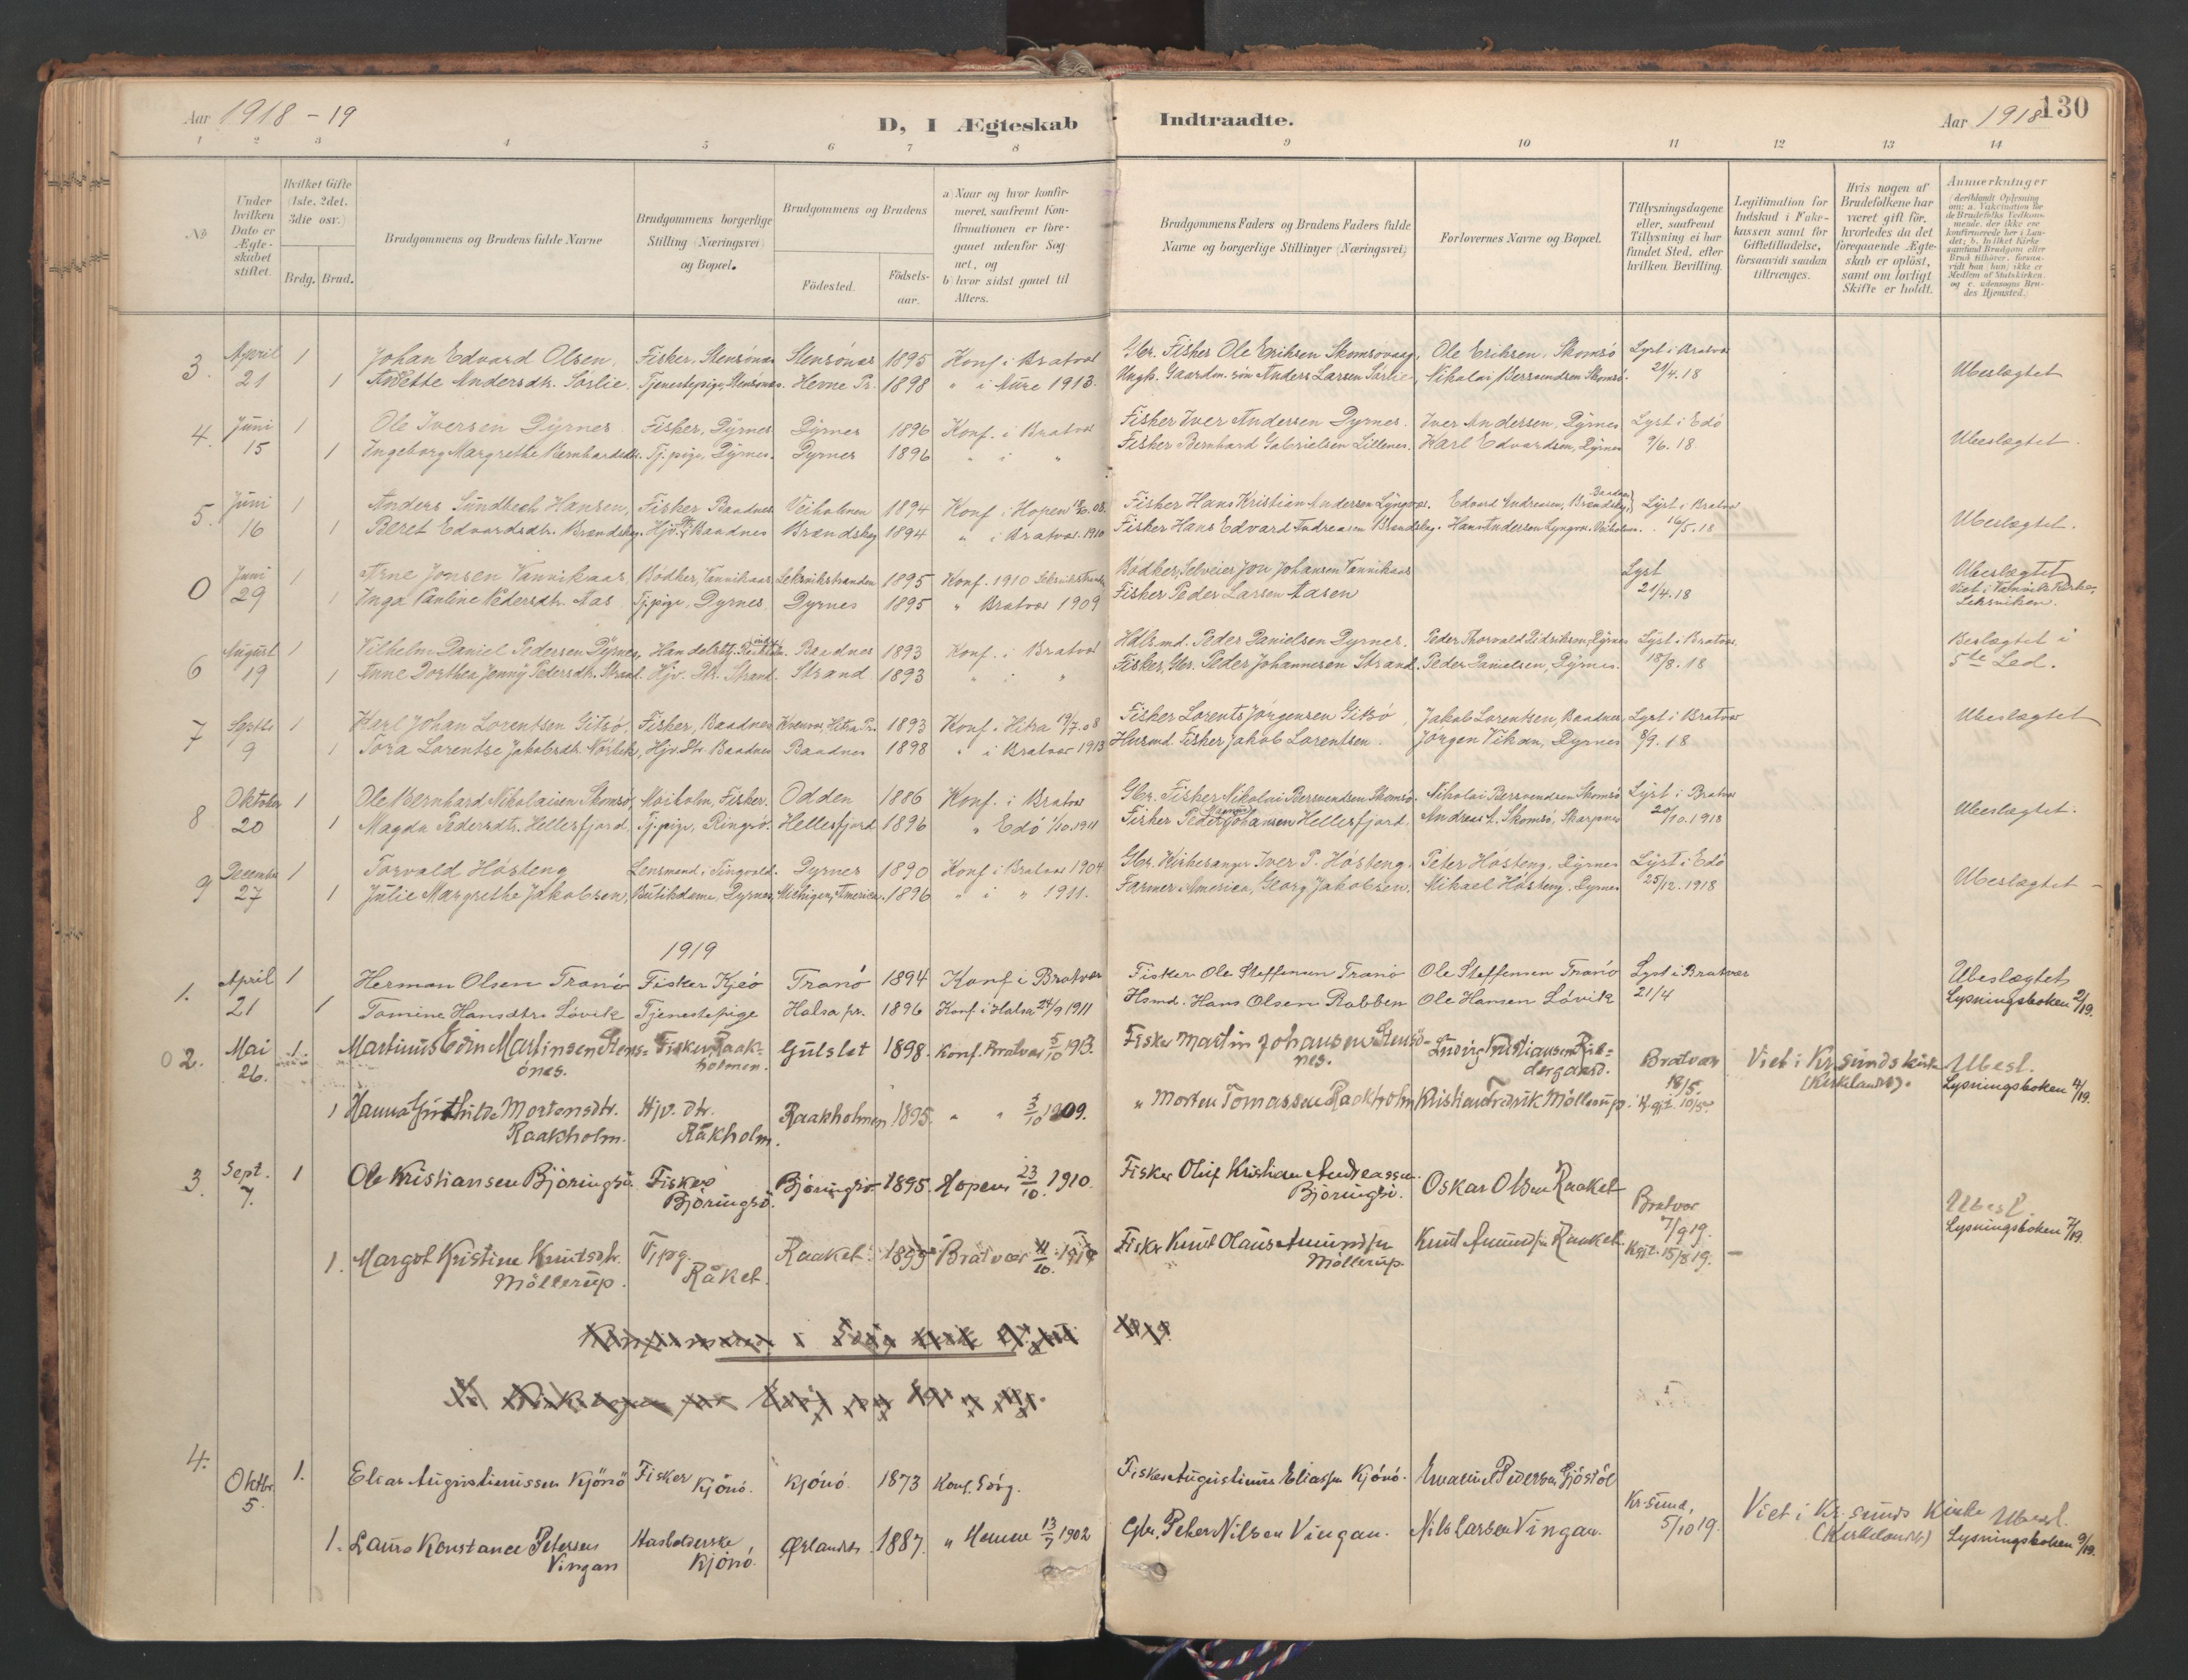 Aar 1918 - 19
D, I Ægteskab Indtraadte.
Aar 1918
130
1 2 3 4 5 6 7 8 9 10 11 12 13 14
No
Under hvilken Dato er Ægteskabet stiftet.
Hvilket Gifte (1ste, 2det, 3die osv.)
Brdg. Brud.
Brudgommens og Brudens fulde Navne
Brudgommens borgerlige Stilling (Næringsvei) og Bopæl.
Brudgommens og Brudens
Födested.
Födselsaar.
a Naar og hvor konfirmeret, saafremt Konfirmationen er foregaaet udenfor Sognet, og
b hvor sidst gaaet til Alters.
Brudgommens Faders og Brudens Faders fulde Navne og borgerlige Stillinger (Næringsvei)
Forlovernes Navne og Bopæl.
Tillysningsdagene eller, saafremt Tillysning ei har fundet Sted, efter hvilken Bevilling.
Legitimation for Indskud i Enkekassen samt for Giftetilladelse, forsaavidt saadan tiltrænges.
Hvis nogen af Brudefolkene har været gift för, hvorledes da det foregaaende Ægteskab er oplöst, samt om lovligt Skifte er holdt.
Anmerkninger
3. April 1 Johan Edvard Olsen, Fisker, Stensönes Stensönes 1895 Konf. i Bratvær Gbr. Fisker Ole Eriksen Skomsövaag, Ole Eriksen, Skomsö Lyst i Bratvær
21 1 Anette Andersdtr. Sörlie. Tjenestepige, Stensönes. Hemne Pr. 1898 " i Aure 1913. Ungk. Gaardm. sön Anders Larsen Sörlie, Nikolai Bersvendsen Skomsö. 21/4.18 Ubeslægtet
4. Juni 1 Ole Iversen Dyrnes Fisker, Dyrnes Dyrnes 1896 Konf. i Bratvær Fisker Iver Andersen Dyrnes. Iver Andersen, Dyrnes Lyst i Edö
15 1 Ingeborg Margrethe Bernhardsdtr. Tj.pige, Dyrnes. Dyrnes 1896 " i " Fisker Bernhard Gabrielsen Lillenes. Karl Edvardsen, Dyrnes 9/6.18 Ubeslægtet.
5. Juni 1 Anders Sundbech Hansen, Fisker Baadnes Veiholmen 1894 Konf. i Hopen 08. Fisker Hans Kristian Andersen Lyngvær. Edvard Andreasen, Brændskag, Lyst i Bratvær
16 1 Beret Edvardsdtr. Brændskag. Hjv. Dtr. Baadnes Brændskag 1894 " i Bratvær. 1910 Fisker Hans Edvard Andreasen Brændskag. Hans Andersen Lyngvær. Veiholmen. 16/5.18 Ubeslægtet.
0 Juni 1 Arne Jonsen Vanvikaas, Bödker, Vanvikaas Leksvikstranden 1895 Konf. 1910 Leksvikstranden Bödker, Selveier Jon Johansen Vanvikaas Lyst Ubeslægtet
29 1 Inga Pauline Pedersdtr. Aas Tj.pige, Dyrnes. Dyrnes 1895 " Bratvær 1909 Fisker Peder Larsen Aasen 21/4.18 Viet i Vanvik Kirke, Leksviken.
6 August 1 Vilhelm Daniel Pedersen Dyrnes, Handels Baadnes 1893 Konf. i Bratvær Hdlsmd. Peder Danielsen Dyrnes. Peder Thorvald Didriksen, Dyrnes Lyst i Bratvær Beslægtet i
19 1 Anne Dorthea Jenny Pedersdtr. Strand. Hjv. Dtr. Strand. Strand 1893 " i " Fisker, Gbr. Peder Johannesen Strand. Peder Danielsen, Dyrnes. 18/8.18 5te Led.
7 Septbr 1 Karl Johan Lorentsen Gitsö, Fisker, Baadnes Kvenvær, Hitra Pr. 1893 Konf. Hitra 19/7.08 Fisker Lorents Jörgensen Gitsö, Jakob Lorentsen, Baadnes, Lyst i Bratvær Ubeslægtet
9 1 Tora Lorentse Jakobsdtr. Hjv. Dtr. Baadnes Baadnes 1898 " i Bratvær 1913 Husmd. Fisker Jakob Lorentsen. Jörgen Vikan, Dyrnes 8/9.18
8 Oktober 1 Ole Bernhard Nikolaisen Skomsö, Moiholm, Fisker. Odden 1886 Konf. i Bratvær Gbr. Fisker Nikolai Bersvendsen Skomsö. Nikolai Bersvendsen Skomsö Lyst i Bratvær
20 1 Magda Pedersdtr. Hellesfjord, Tj.pige, Ringsö. Hellesfjord 1896 " Edö 1/10.1911 Fisker Peder Johansen Hellesfjord. Andreas A. Skomsö, Skarpnes 20/10.1918 Ubeslægtet.
9 December 1 Torvald Hösteng Lensmand i Tingvold. Dyrnes 1890 Konf. i Bratvær 1904 Gbr. Kirkesanger Iver P. Hösteng. Peter Hösteng, Dyrnes Lyst i Edö
27 1 Julie Margrethe Jakobsen, Butikdame, Dyrnes, Michigan, Amerika. 1896 " i " 1911. Farmer i America, Georg Jakobsen. Mikael Hösteng, Dyrnes 25/12.1918 Ubeslægtet
1919
1. April 1 Herman Olsen Tranö Fisker Kjeö Tranö 1894 Konf i Bratvær Fisker Ole Steffensen Tranö Ole Steffensen Tranö Lyst i Bratvær Ubeslægtet
21 1 Tomine Hansdtr. Lövik Tjenestepige Halsa pr. 1896 Konf. i Halsa 24/9 1911 Hsmd. Hans Olsen Rabben Ole Hansen Lövik 21/4 Lysningsboken 2/19.
02. Mai 1. Martinus Edin Martinsen Stensönes. Fisker, Raakholmen. Gulslet 1898. Konf. Bratvær 5/10 1913. Fisker Martin Johansen Stensönes. Ludvig Kristiansen Bratvær Viet i Kr.sunds kirke (Kirkelandet). Ubesl.
26. 18/5. Lysningsboken 4/19.
1 Hanna Mortensdtr. Raakholm. Hjv. dtr. Råkholm. Raakholmen 1895. " " 3/10 1909. " Morten Tomassen Raakholm Kristian Fredrik Möllerup. K.gj. 10/5
3. Sept. 7. 1 Ole Kristiansen Björingsö. Fisker Björingsö. Björingsö 1895. Hopen 23/10. 1910. Fisker Oluf Kristian Andreassen Björingsö. Oskar Olsen Raaket Bratvær 7/9 19. Ubesl.
Lysningsboken 7/19.
1. Margot Kristine Knutsdtr. Möllerup. Tj.pg. Råket. Raaket. Bratvær Fisker Knut Olaus Amundsen Möllerup. Knut Amundsen Raaket. Kgjt. 15/8 19.
4. Oktbr. 5. 1. Elias Augustinussen Kjönö Fisker Kjönö. Kjönö. 1873 Konf. Fisker Augustinus Eliassen Kjönö. Emanuel Pedersen Kr.sund, 5/10 19. Viet i Kr.sunds Kirke (Kirkelandet) Ubesl.
1. Laura Konstance Petersen Vingan Husholderske Kjönö. Ørlandet. 1887. " Hemne 13/7 1902 Gbr. Peter Nilsen Vingan. Nils Larsen Vingan. Lysningsboken 9/19.